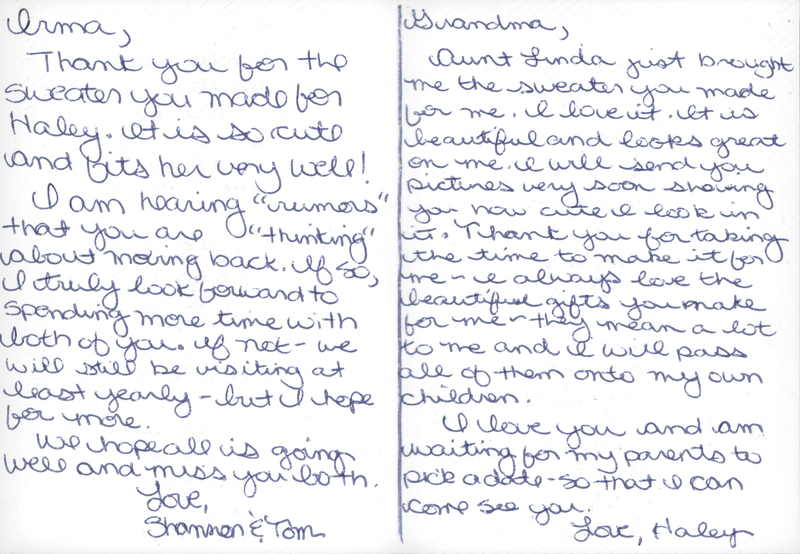 Irma,
Thank you for the
sweater you made for
Haley. It is so cute
and fits her very well!
I am hearing "rumors"
that you are "thinking"
about moving back. If so,
I truly look forward to
spending more time with
both of you. If not - we
will still be visiting at
least yearly - but I hope
for more.
We hope all is going
well and miss you both.
Love,
Shannon & Tom
Grandma,
Aunt Linda just brought
me the sweater you made
for me. I love it. It is
beautiful and looks great
on me. I will send you
pictures very soon showing
you how cute I look in
it. Thank you for taking
the time to make it for
me - I always love the
beautiful gifts you make
for me - they mean a lot
to me and I will pass
all of them onto my own
children.
I love you and am
waiting for my parents to
pick a date - so that I can
come see you.
Love, Haley